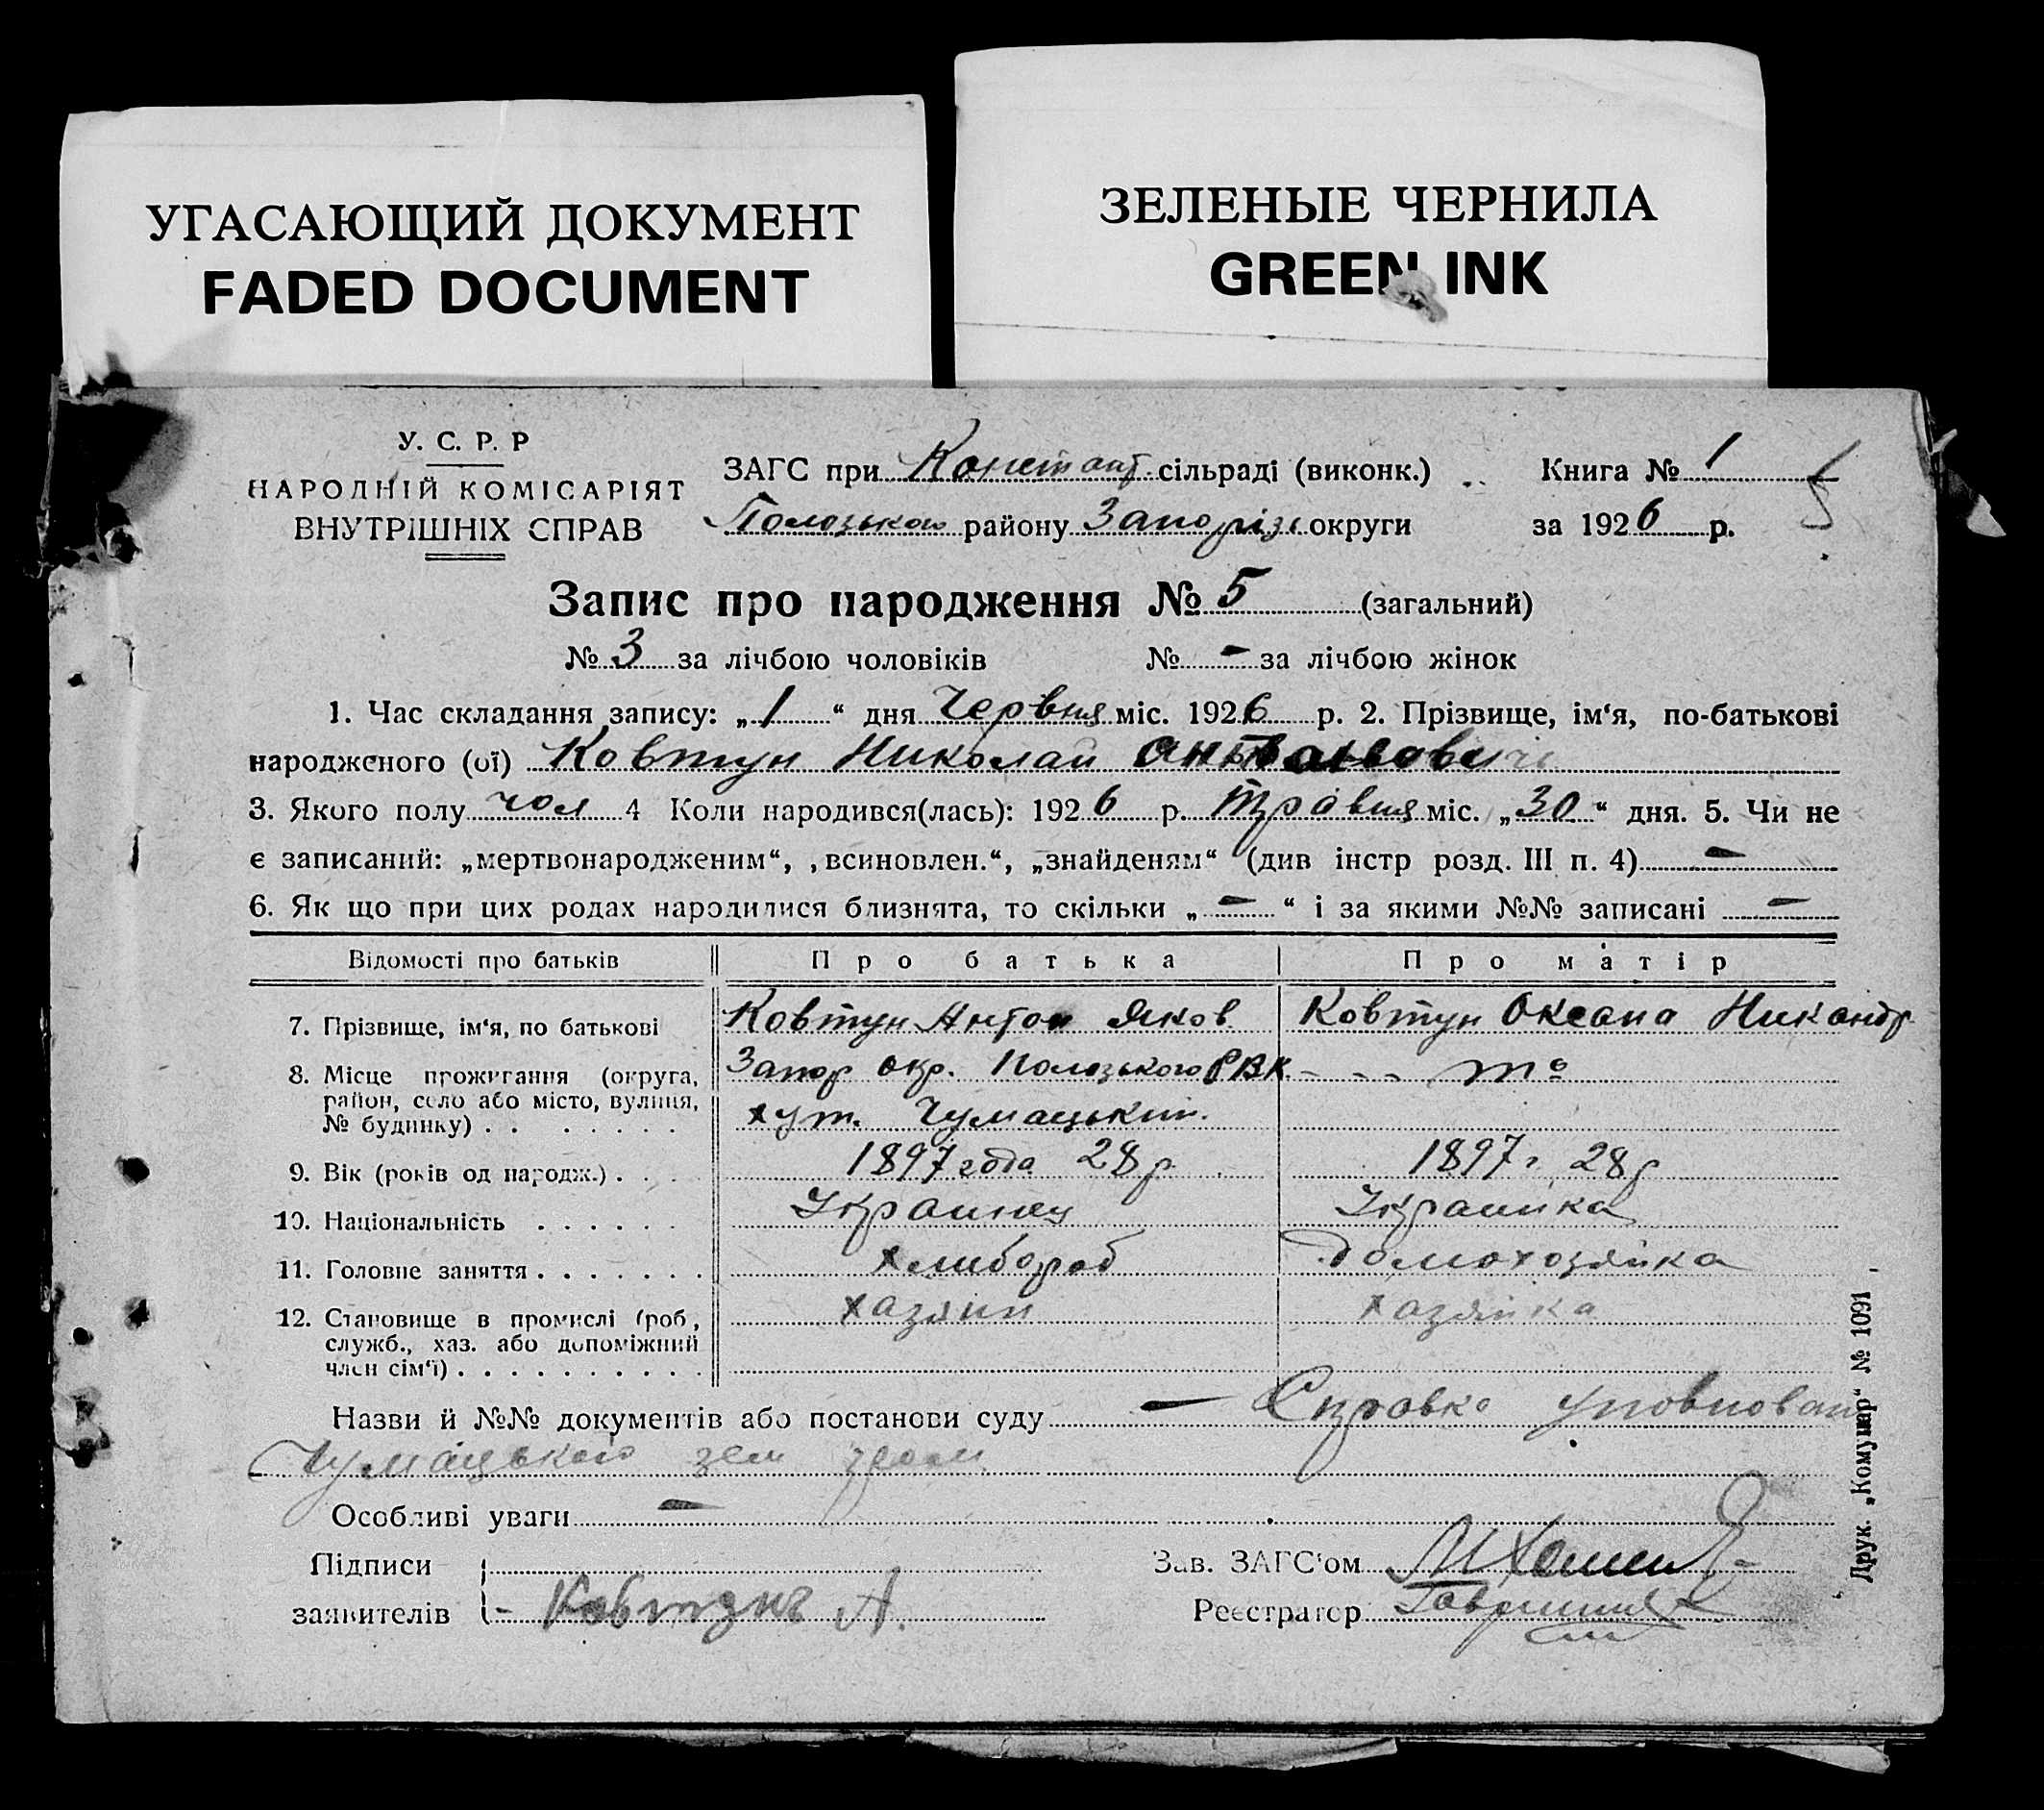 УГАСАЮЩИЙ ДОКУМЕНТ
FADED DOCUMENT
ЗЕЛЕНЫЕ ЧЕРНИЛА
GREEN INK
У. С. Р. Р
НАРОДНІЙ КОМІСАРІЯТ
ВНУТРІШНІХ СПРАВ
ЗАГС при Констант. сільраді (виконк.)
Полозького району Запоріз. округи
Книга № 1
за 1926 р.
5
Запис про народження № 5 (загальний)
№ 3 за лічбою чоловіків № - за лічбою жінок
1. Час складання запису: „1“ дня Червня міс. 1926 р. 2. Прізвище, ім'я, по-батькові
народженого (ої) Ковтун Николай Антонович
3. Якого полу чол 4 Коли народився(лась): 1926 р. Травня міс. „30“ дня. 5. Чи не
є записаний: „мертвонародженим“, ‚всиновлен.“, „знайденям“ (див інстр розд. III п. 4) -
6. Як що при цих родах народилися близнята, то скільки „-“ і за якими №№ записані -
Відомості про батьків Про батька Про матір
7. Прізвище, ім'я, по батькові Ковтун Антон Яков. Ковтун Оксана Никандр.
8. Місце проживання (округа, Запор окр. Полозького РВК - - - то
район, село або місто, вулиця, хут. Чумацький.
№ будинку) . . . . . . . .
9. Вік (років од народж.) . . . 1897 года 28 р 1897 г. 28 р
10. Національність . . . . . . Украинец Украинка
11. Головне заняття . . . . . . . хлибороб домохозяйка
12. Становище в промислі (роб, хазяин хазяйка
служб., хаз. або допоміжний
член сім'ї) . . . . . . . . . .
Назви й №№ документів або постанови суду - Справка уповноваж
Чумацького зем гром
Особливі уваги -
Підписи
заявителів - Ковтунъ А.
Зав. ЗАГС'ом
Реєстратор
Друк. „Комунар“ № 1091